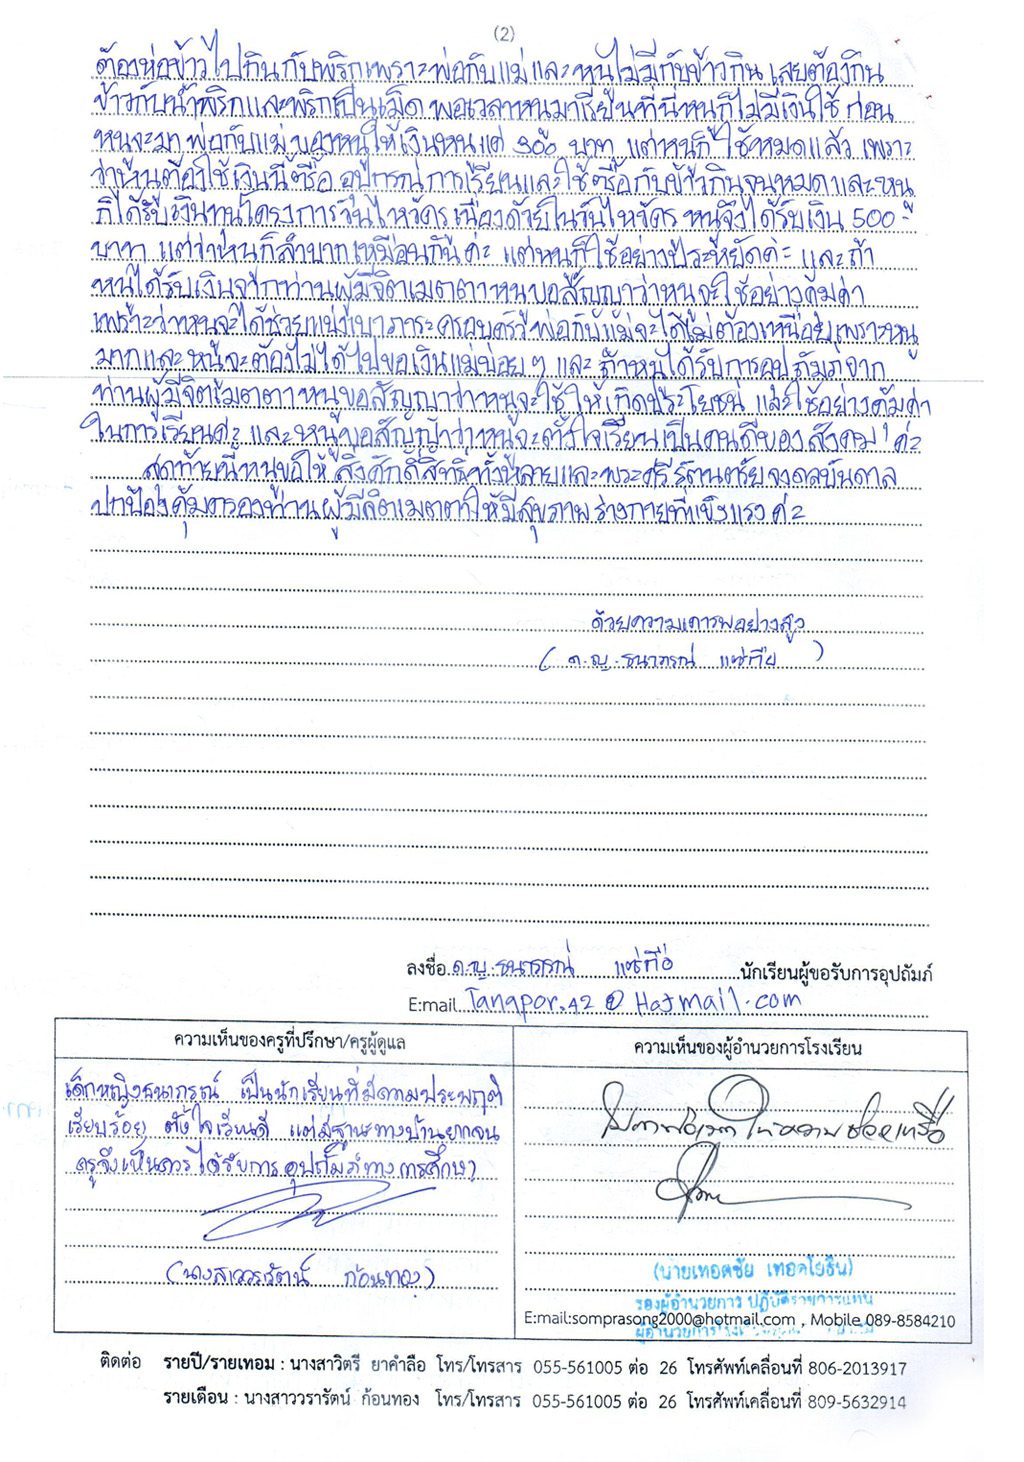 (2)
ต้องห่อข้าวไปกินกับพริกเพราะพ่อกับแม่และหนูไม่มีกับข้าวกิน เลยต้องกิน
ข้าวกับน้ำพริกและพริกเป็นเม็ด พอเวลาหนูมาเรียนที่นี่หนูก็ไม่มีเงินใช้ ก่อน
หนูจะมา พ่อกับแม่ของหนูให้เงินหนูแค่ 300 บาท แต่หนูก็ใช้หมดแล้ว เพราะ
ว่าหนูต้องใช้เงินนี้ซื้อ อุปกรณ์การเรียนและใช้ซื้อกับข้าวกินจนหมดและหนู
ก็ได้รับเงินทุนโครงการวันไหว้ครู เนื่องด้วยในวันไหว้ครู หนูจึงได้รับเงิน 500-
บาท แต่ว่าหนูก็ลำบากเหมือนกันค่ะ แต่หนูก็ใช้อย่างประหยัดค่ะ และถ้า
หนูได้รับเงินจากท่านผู้มีจิตเมตตาหนูขอสัญญาว่าหนูจะใช้อย่างคุ้มค่า
เพราะว่าหนูจะได้ช่วยแบ่งเบาภาระครอบครัว พ่อกับแม่จะได้ไม่ต้องเหนื่อยเพราะหนู
มากและหนูจะต้องไม่ได้ไปขอเงินแม่บ่อยๆ และ ถ้าหนูได้รับการอุปถัมภ์จาก
ท่านผู้มีจิตเมตตา หนูขอสัญญาว่าหนูจะใช้ให้เกิดประโยชน์ และใช้อย่างคุ้มค่า
ในการเรียนค่ะ และหนูขอสัญญาว่าหนูจะตั้งใจเรียนเป็นคนดีของสังคม ค่ะ
สุดท้ายนี้หนูขอให้ สิ่งศักดิ์สิทธิ์ทั้งหลายและพระศรีรัตนตรัยจงดลบันดาล
ปกป้องคุ้มครองท่านผู้มีจิตเมตตาให้มีสุขภาพร่างกายที่แข็งแรง ค่ะ
ด้วยความเคารพอย่างสูง
( ด.ญ. ธนาภรณ์ แซ่กือ )
ลงชื่อ ด.ญ. ธนาภรณ์ แซ่กือ นักเรียนผู้ขอรับการอุปถัมภ์
E:mail Tanapor.42@Hotmail.com
ความเห็นของครูที่ปรึกษา/ครูผู้ดูแล
เด็กหญิงธนาภรณ์ เป็นนักเรียนที่มีความประพฤติ
เรียบร้อย ตั้งใจเรียนดี แต่มีฐานะทางบ้านยากจน
ครูจึงเห็นควรได้รับการอุปถัมภ์ทางการศึกษา
(นางสาววรารัตน์ ก้อนทอง)
ความเห็นของผู้อำนวยการโรงเรียน
โปรดพิจารณาให้ความช่วยเหลือ
(นายเทอดชัย เทอดโยธิน)
รองผู้อำนวยการ ปฏิบัติราชการแทน
E:mail:somprasong2000@hotmail.com , Mobile 089-8584210
ติดต่อ รายปี/รายเทอม : นางสาวิตรี ยาคำลือ โทร/โทรสาร 055-561005 ต่อ 26 โทรศัพท์เคลื่อนที่ 806-2013917
รายเดือน : นางสาววรารัตน์ ก้อนทอง โทร/โทรสาร 055-561005 ต่อ 26 โทรศัพท์เคลื่อนที่ 809-5632914